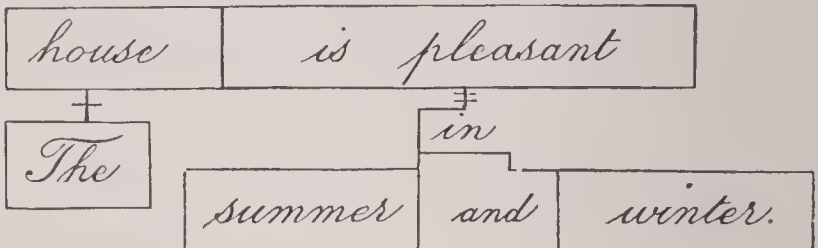 house is pleasant
in
The
summer and winter.